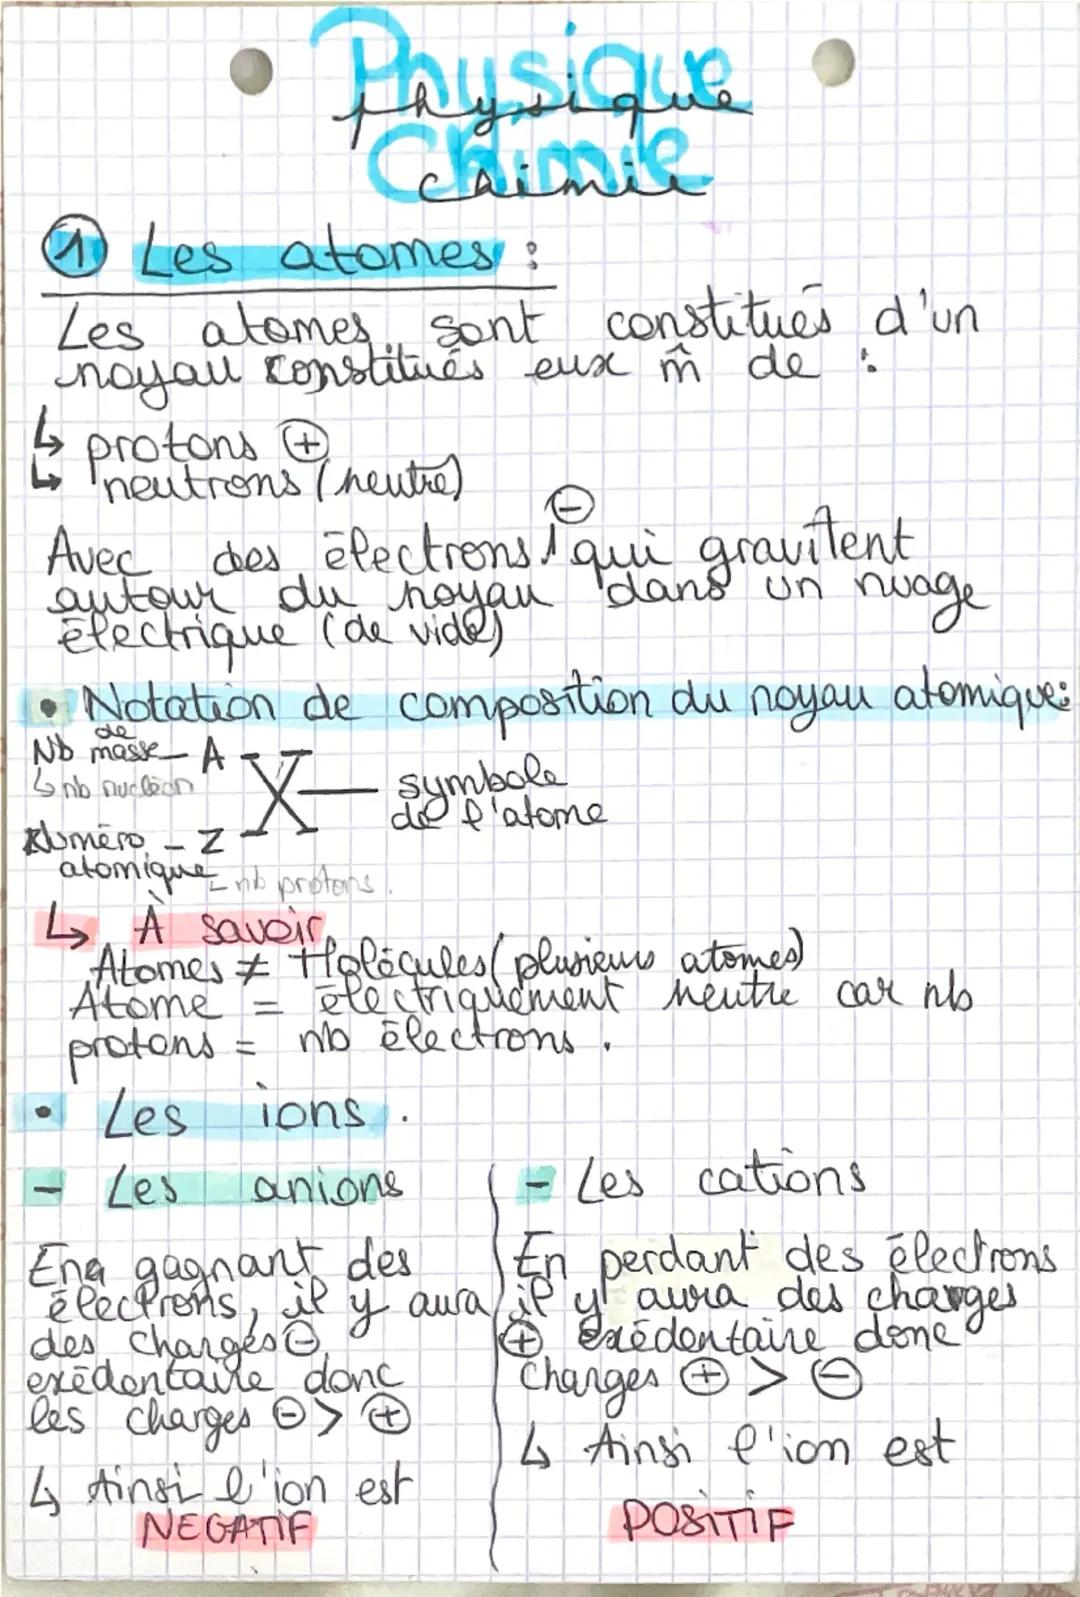 Physique
physique
Chimie
chimie
① Les atomes :
Les atomes sont constitués d'un
noyau constitués eux m̂ de :
↳ protons ⊕
↳ neutrons (neutre)
⊖
Avec des électrons qui gravitent
autour du noyau dans un nuage
électrique (de vide)
• Notation de composition du noyau atomique:
de
Nb masse — A
↳ nb nucléon
X — symbole
de l'atome
Numéro — Z
atomique
nb protons.
↳ À savoir
Atomes ≠ Molécules (plusieurs atomes)
Atome = électriquement neutre car nb
protons = nb électrons.
• Les ions.
- Les anions
En gagnant des
électrons, il y aura
des charges ⊖
exédentaire donc
les charges ⊖ > ⊕
↳ Ainsi l'ion est
NEGATIF
- Les cations
En perdant des électrons
il y aura des charges
⊕ exédentaire donc
charges ⊕ > ⊖
↳ Ainsi l'ion est
POSITIF